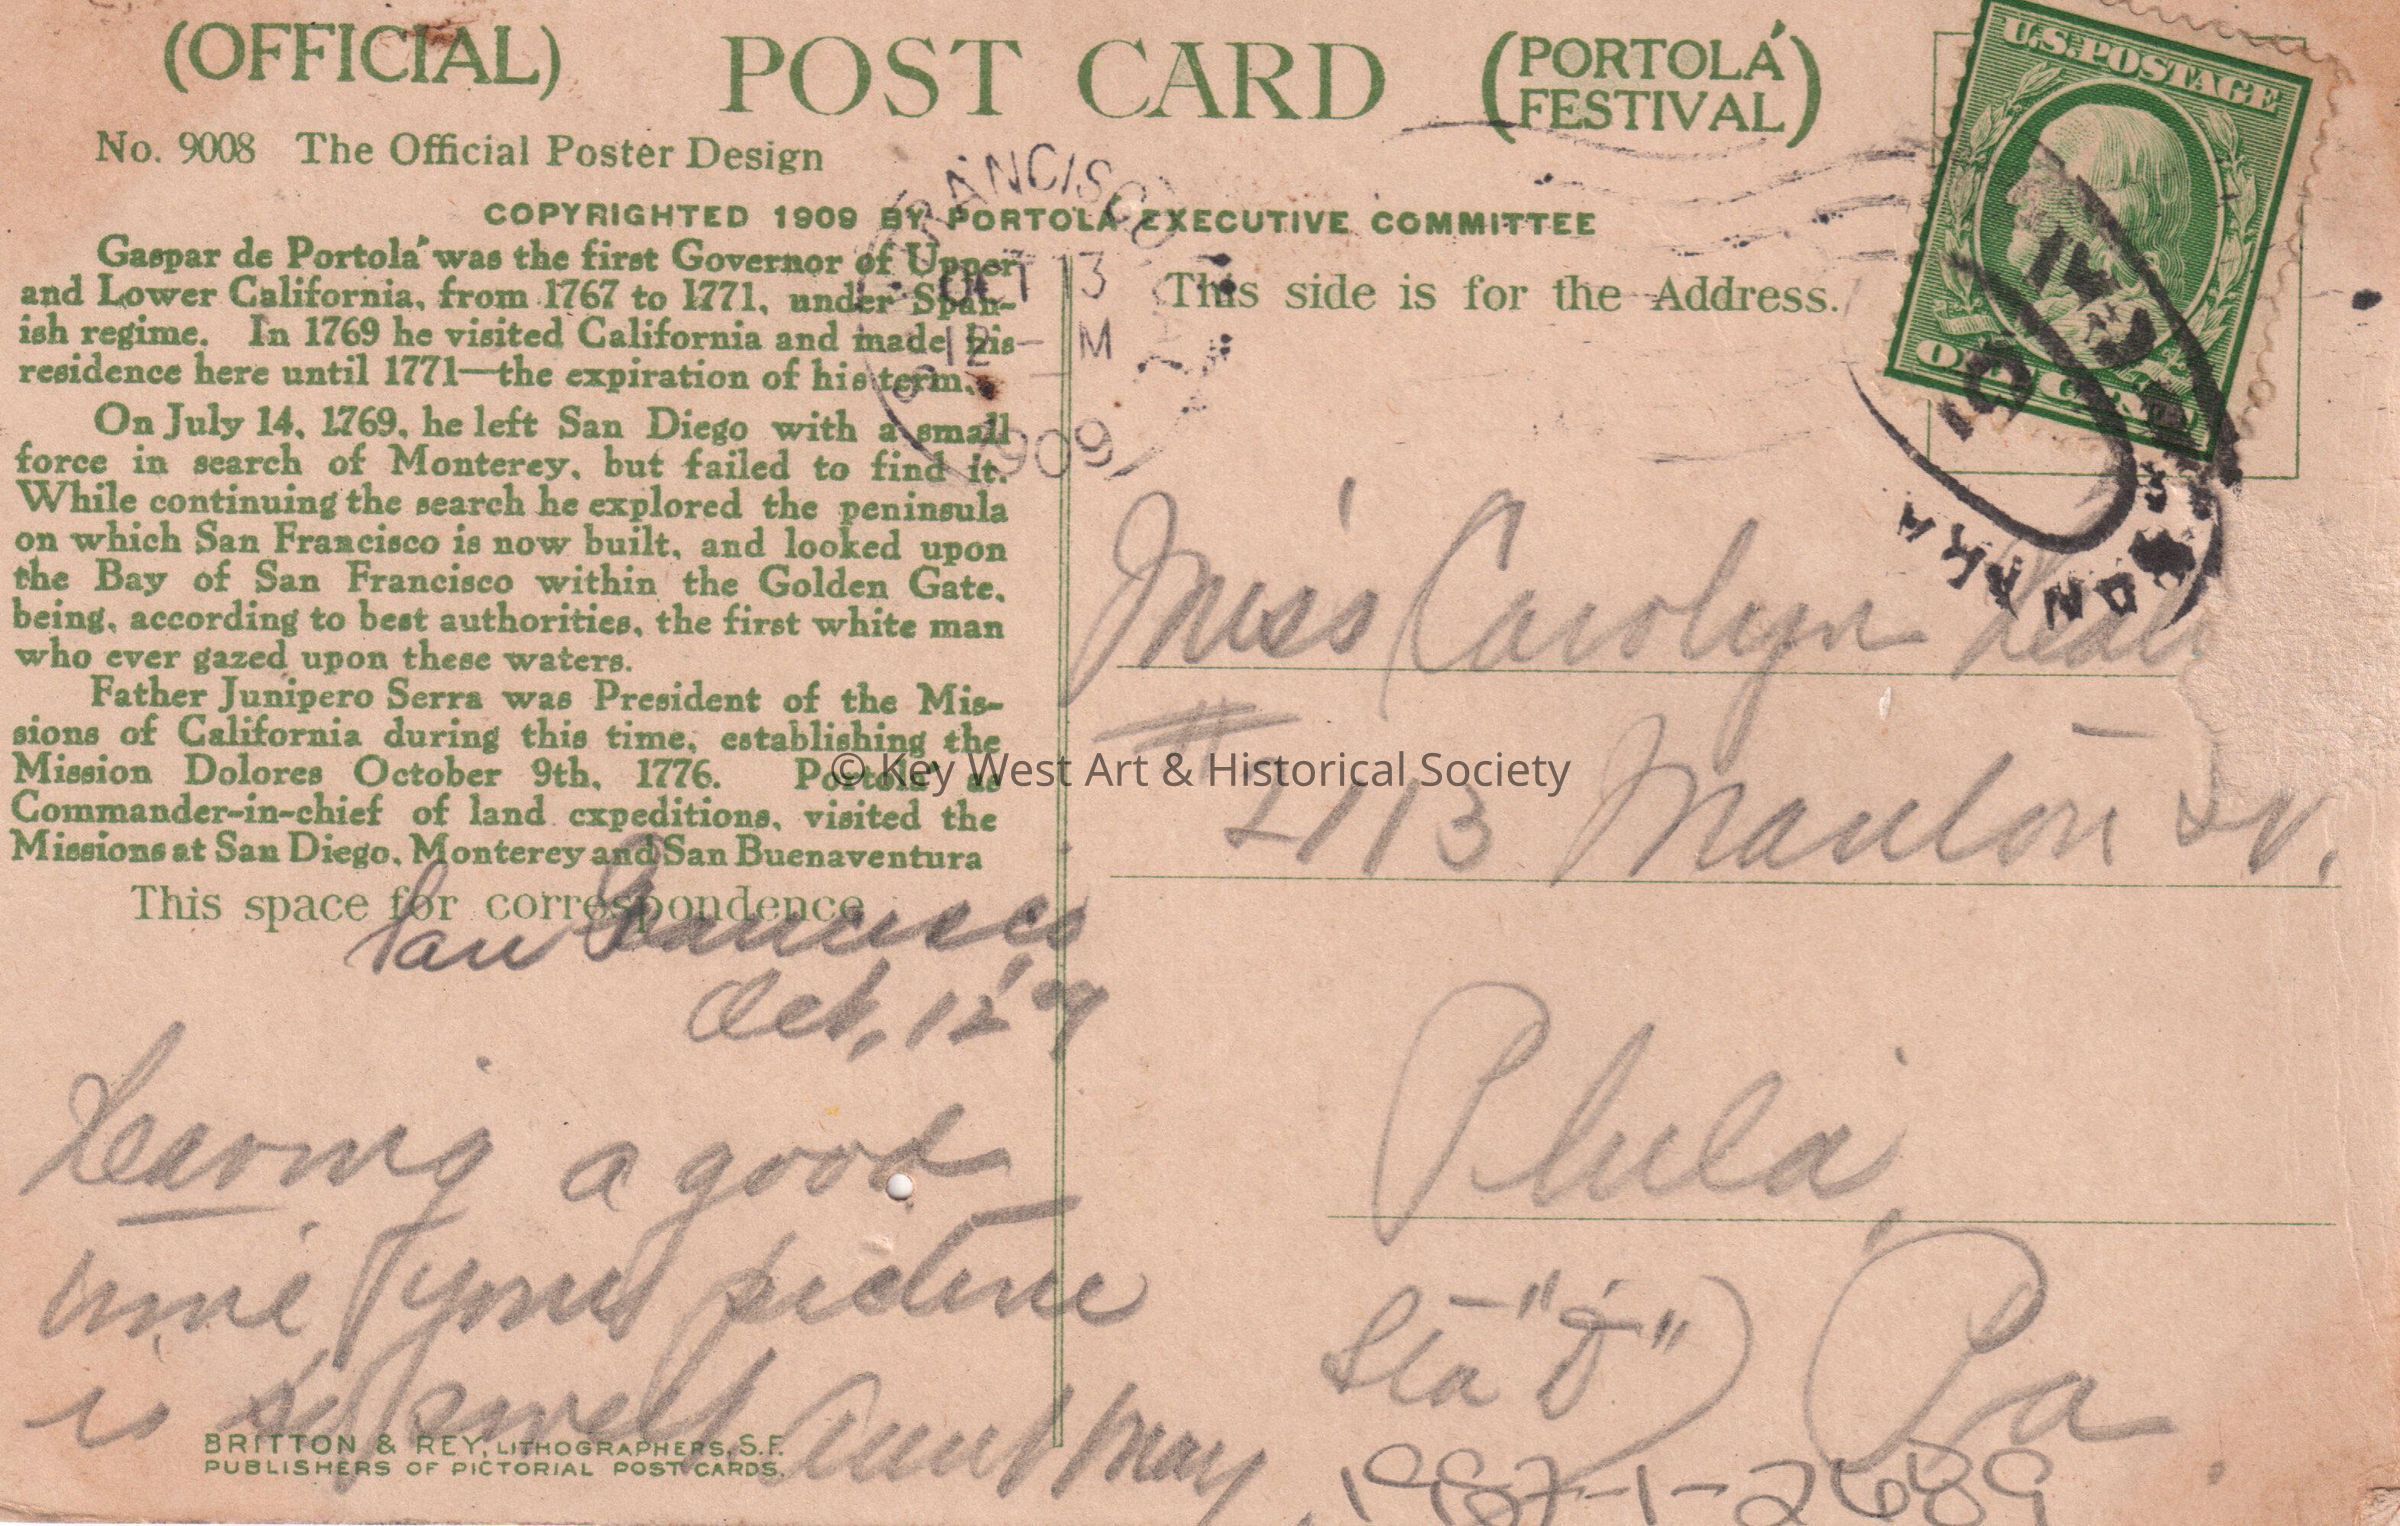 (OFFICIAL) POST CARD (PORTOLÁ FESTIVAL)
U.S. POSTAGE
No. 9008 The Official Poster Design
COPYRIGHTED 1909 BY PORTOLA EXECUTIVE COMMITTEE
FRANCISCO
OCT 13
12 - M
1909
ONE CENT
Gaspar de Portolá was the first Governor of Upper
and Lower California, from 1767 to 1771, under Span-
ish regime. In 1769 he visited California and made his
residence here until 1771—the expiration of his term.
On July 14, 1769, he left San Diego with a small
force in search of Monterey, but failed to find it.
While continuing the search he explored the peninsula
on which San Francisco is now built, and looked upon
the Bay of San Francisco within the Golden Gate,
being, according to best authorities, the first white man
who ever gazed upon these waters.
Father Junipero Serra was President of the Mis-
sions of California during this time, establishing the
Mission Dolores October 9th, 1776. Portolá as
Commander-in-chief of land expeditions, visited the
Missions at San Diego, Monterey and San Buenaventura
This space for correspondence
San Francisco
Oct, 12 '9
Having a good
time your picture
is so sweet Aunt May
BRITTON & REY, LITHOGRAPHERS, S.F.
PUBLISHERS OF PICTORIAL POST CARDS.
This side is for the Address.
Miss Carolyn
# 2113 Manton St.
Phila,
Pa
Sta - "D"
1987-1-2689
© Key West Art & Historical Society